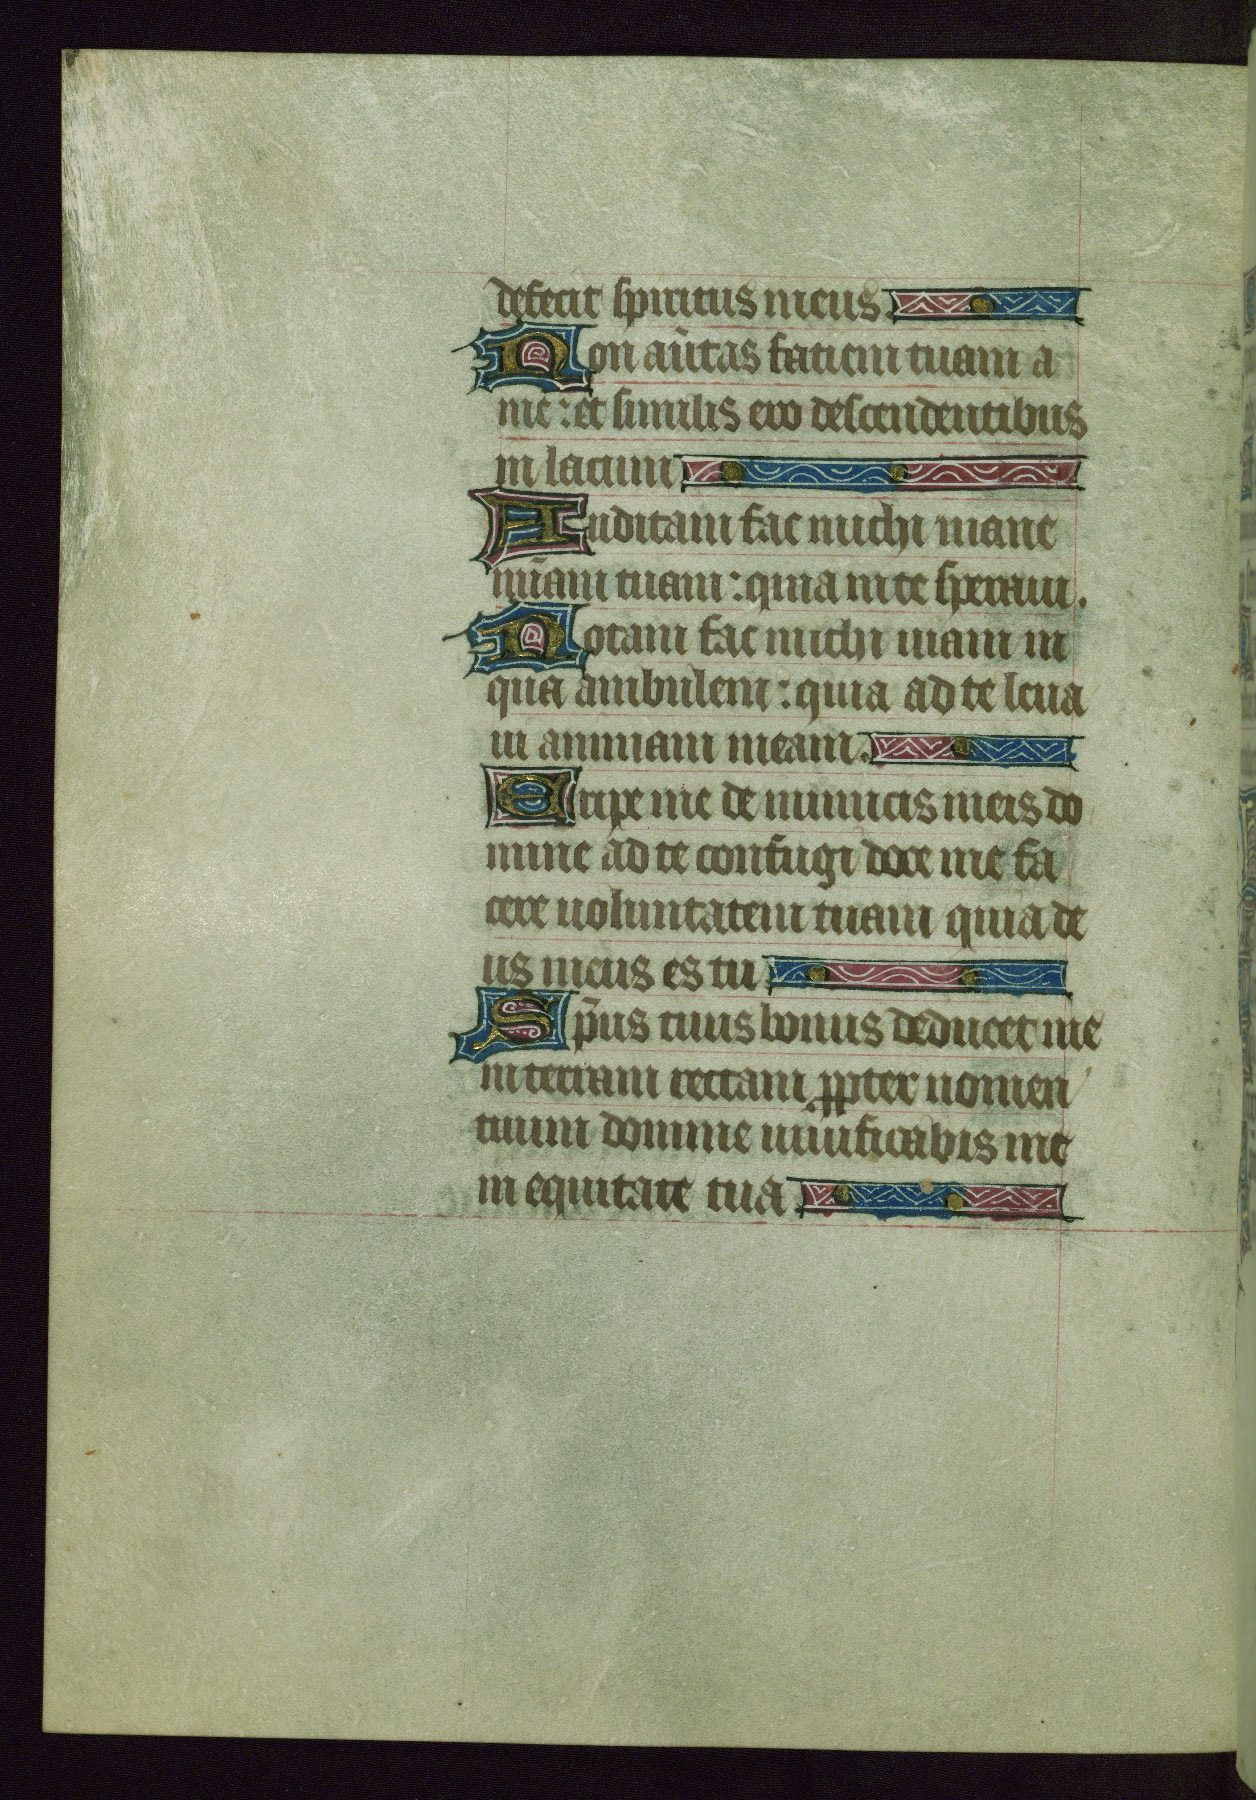 defecit spiritus meus.
Non aūtas faciem tuam a
me : et similis ero descendentibus
in lacum
Auditam fac michi mane
mīam tuam : quia in te speraui.
Notam fac michi uiam in
qua ambulem : quia ad te leua
ui animam meam.
Eripe me de inimicis meis do
mine ad te confugi doce me fa
cere uoluntatem tuam quia de
us meus es tu
Sp̄us tuus bonus deducet me
in terram rectam. ꝓpter nomen
tuum domine uiuificabis me
in equitate tua.